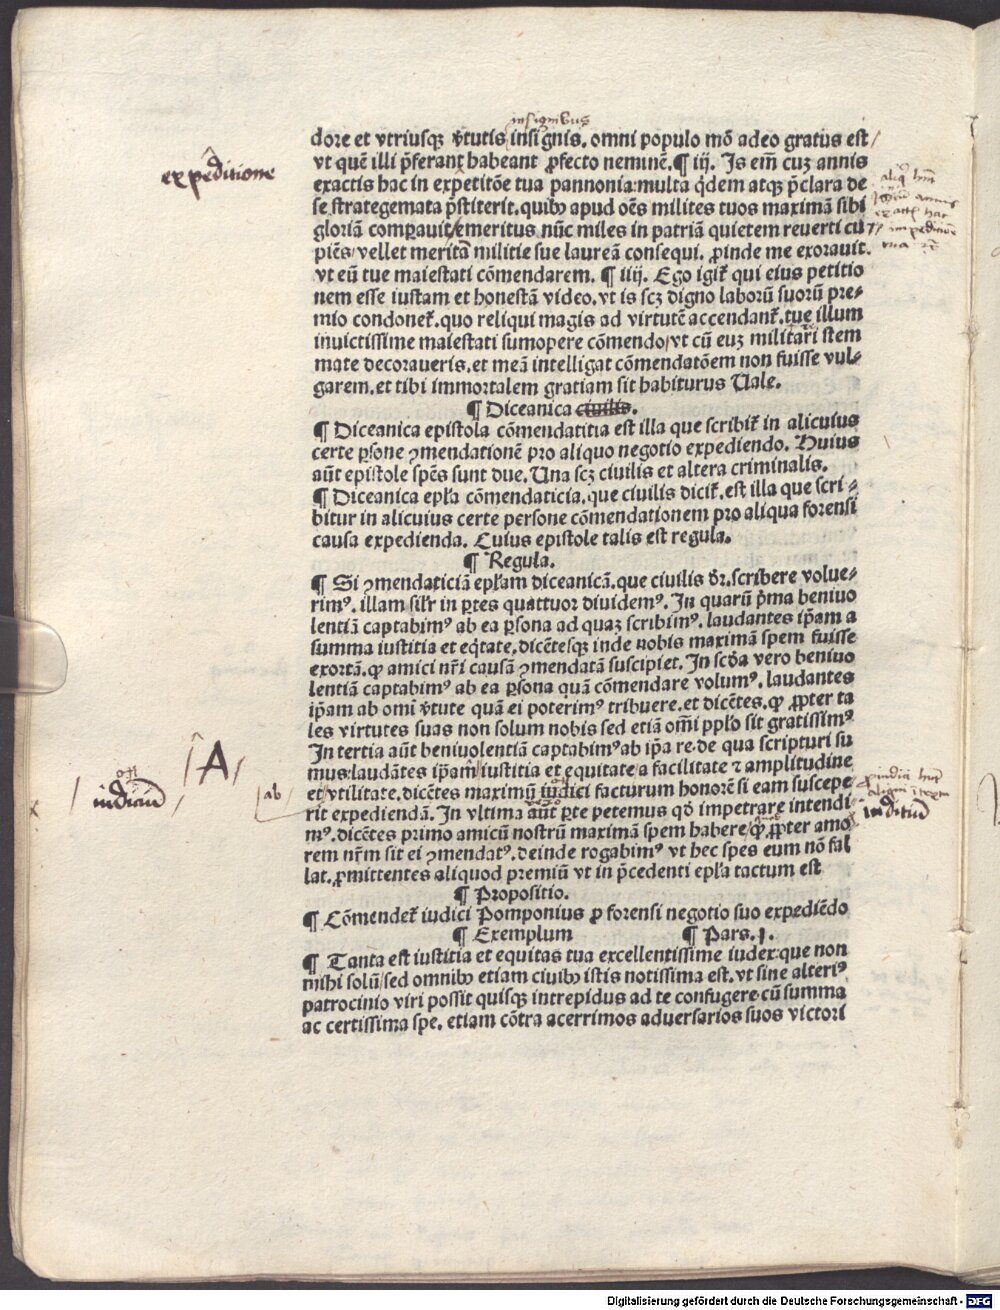 insignibus
dore et vtriusqꝫ v̄tutis insignis. omni populo mō adeo gratus est/
vt quē illi p̄ferant habeant ꝓfecto neminē.¶ iij. Is em̄ cuꝫ annis
expeditione
exactis hac in expetitōe tua pannonia:multa q̇dem atqꝫ p̄clara de
se strategemata p̄stiterit. quibꝰ apud oēs milites tuos maximā sibi
gloriā comꝑauit/emeritus nūc miles in patriā quietem reuerti cu
piēs/vellet meritā militie sue laureā consequi. ꝓinde me exorauit.
vt eū tue maiestati cōmendarem. ¶ iiij. Ego igit̄ qui eius petitio
nem esse iustam et honestā video.vt is scꝫ digno laborū suorū pre⸗
mio condonet̄.quo reliqui magis ad virtutē accendant̄.tue illum
inuictissime maiestati sumopere cōmendo/vt cū euꝫ militari stem
mate decoraueris.et meā intelligat cōmendatōem non fuisse vul⸗
garem.et tibi immortalem gratiam sit habiturus Uale.
¶ Diceanica ciuilis.
¶ Diceanica epistola cōmendatitia est illa que scribit̄ in alicuius
certe ꝑsone ꝯmendationē pro aliquo negotio expediendo. Huius
aūt epistole spēs sunt due. Una scꝫ ciuilis et altera criminalis.
¶ Diceanica epl̄a cōmendaticia.que ciuilis dicit̄.est illa que scri⸗
bitur in alicuius certe persone cōmendationem pro aliqua forensi
causa expedienda. Cuius epistole talis est regula.
¶ Regula.
¶ Si ꝯmendaticiā epl̄am diceanicā.que ciuilis dr̄.scribere volue⸗
rimꝰ. illam sil̄r in ꝑtes quattuor diuidemꝰ. In quarū p̄ma beniuo
lentiā captabimꝰ ab ea ꝑsona ad quaꝫ scribimꝰ. laudantes ip̄am a
summa iustitia et eq̇tate.dicētesqꝫ inde nobis maximā spem fuisse
exortā.ꝙ amici nr̄i causā ꝯmendatā suscipiet. In scd̄a vero beniuo
lentiā captabimꝰ ab ea ꝑsona quā cōmendare volumꝰ. laudantes
ip̄am ab omi v̄tute quā ei poterimꝰ tribuere.et dicētes.ꝙ ꝓpter ta
les virtutes suas non solum nobis sed etiā om̄i pplo sit gratissimꝰ
In tertia aūt beniuolentiā captabimꝰ ab ip̄a re.de qua scripturi su
A
mus:laudātes ip̄am iustitia et equitate a facilitate ⁊ amplitudine
iudiciū
ab
et vtilitate.dicētes maximū iudici facturum honorē si eam suscepe
rit expediendā. In vltima aūt ꝑte petemus qd̓ impetrare intendi
mꝰ.dicētes primo amicū nostrū maximā spem habere/ꝙ ꝓpter amo
rem nr̄m sit ei ꝯmendatꝰ.deinde rogabimꝰ vt hec spes eum nō fal
lat.ꝓmittentes aliquod premiū vt in p̄cedenti epl̄a tactum est
¶ Propositio.
¶ Cōmendet̄ iudici Pomponius ꝓ forensi negotio suo expediēdo
¶ Exemplum ¶ Pars.1.
¶ Tanta est iustitia et equitas tua excellentissime iudex:que non
mihi solū/sed omnibꝰ etiam ciuibꝰ istis notissima est.vt sine alteriꝰ
patrocinio viri possit quisqꝫ intrepidus ad te confugere.cū summa
ac certissima spe. etiam cōtra acerrimos aduersarios suos victori
Digitalisierung gefördert durch die Deutsche Forschungsgemeinschaft - DFG